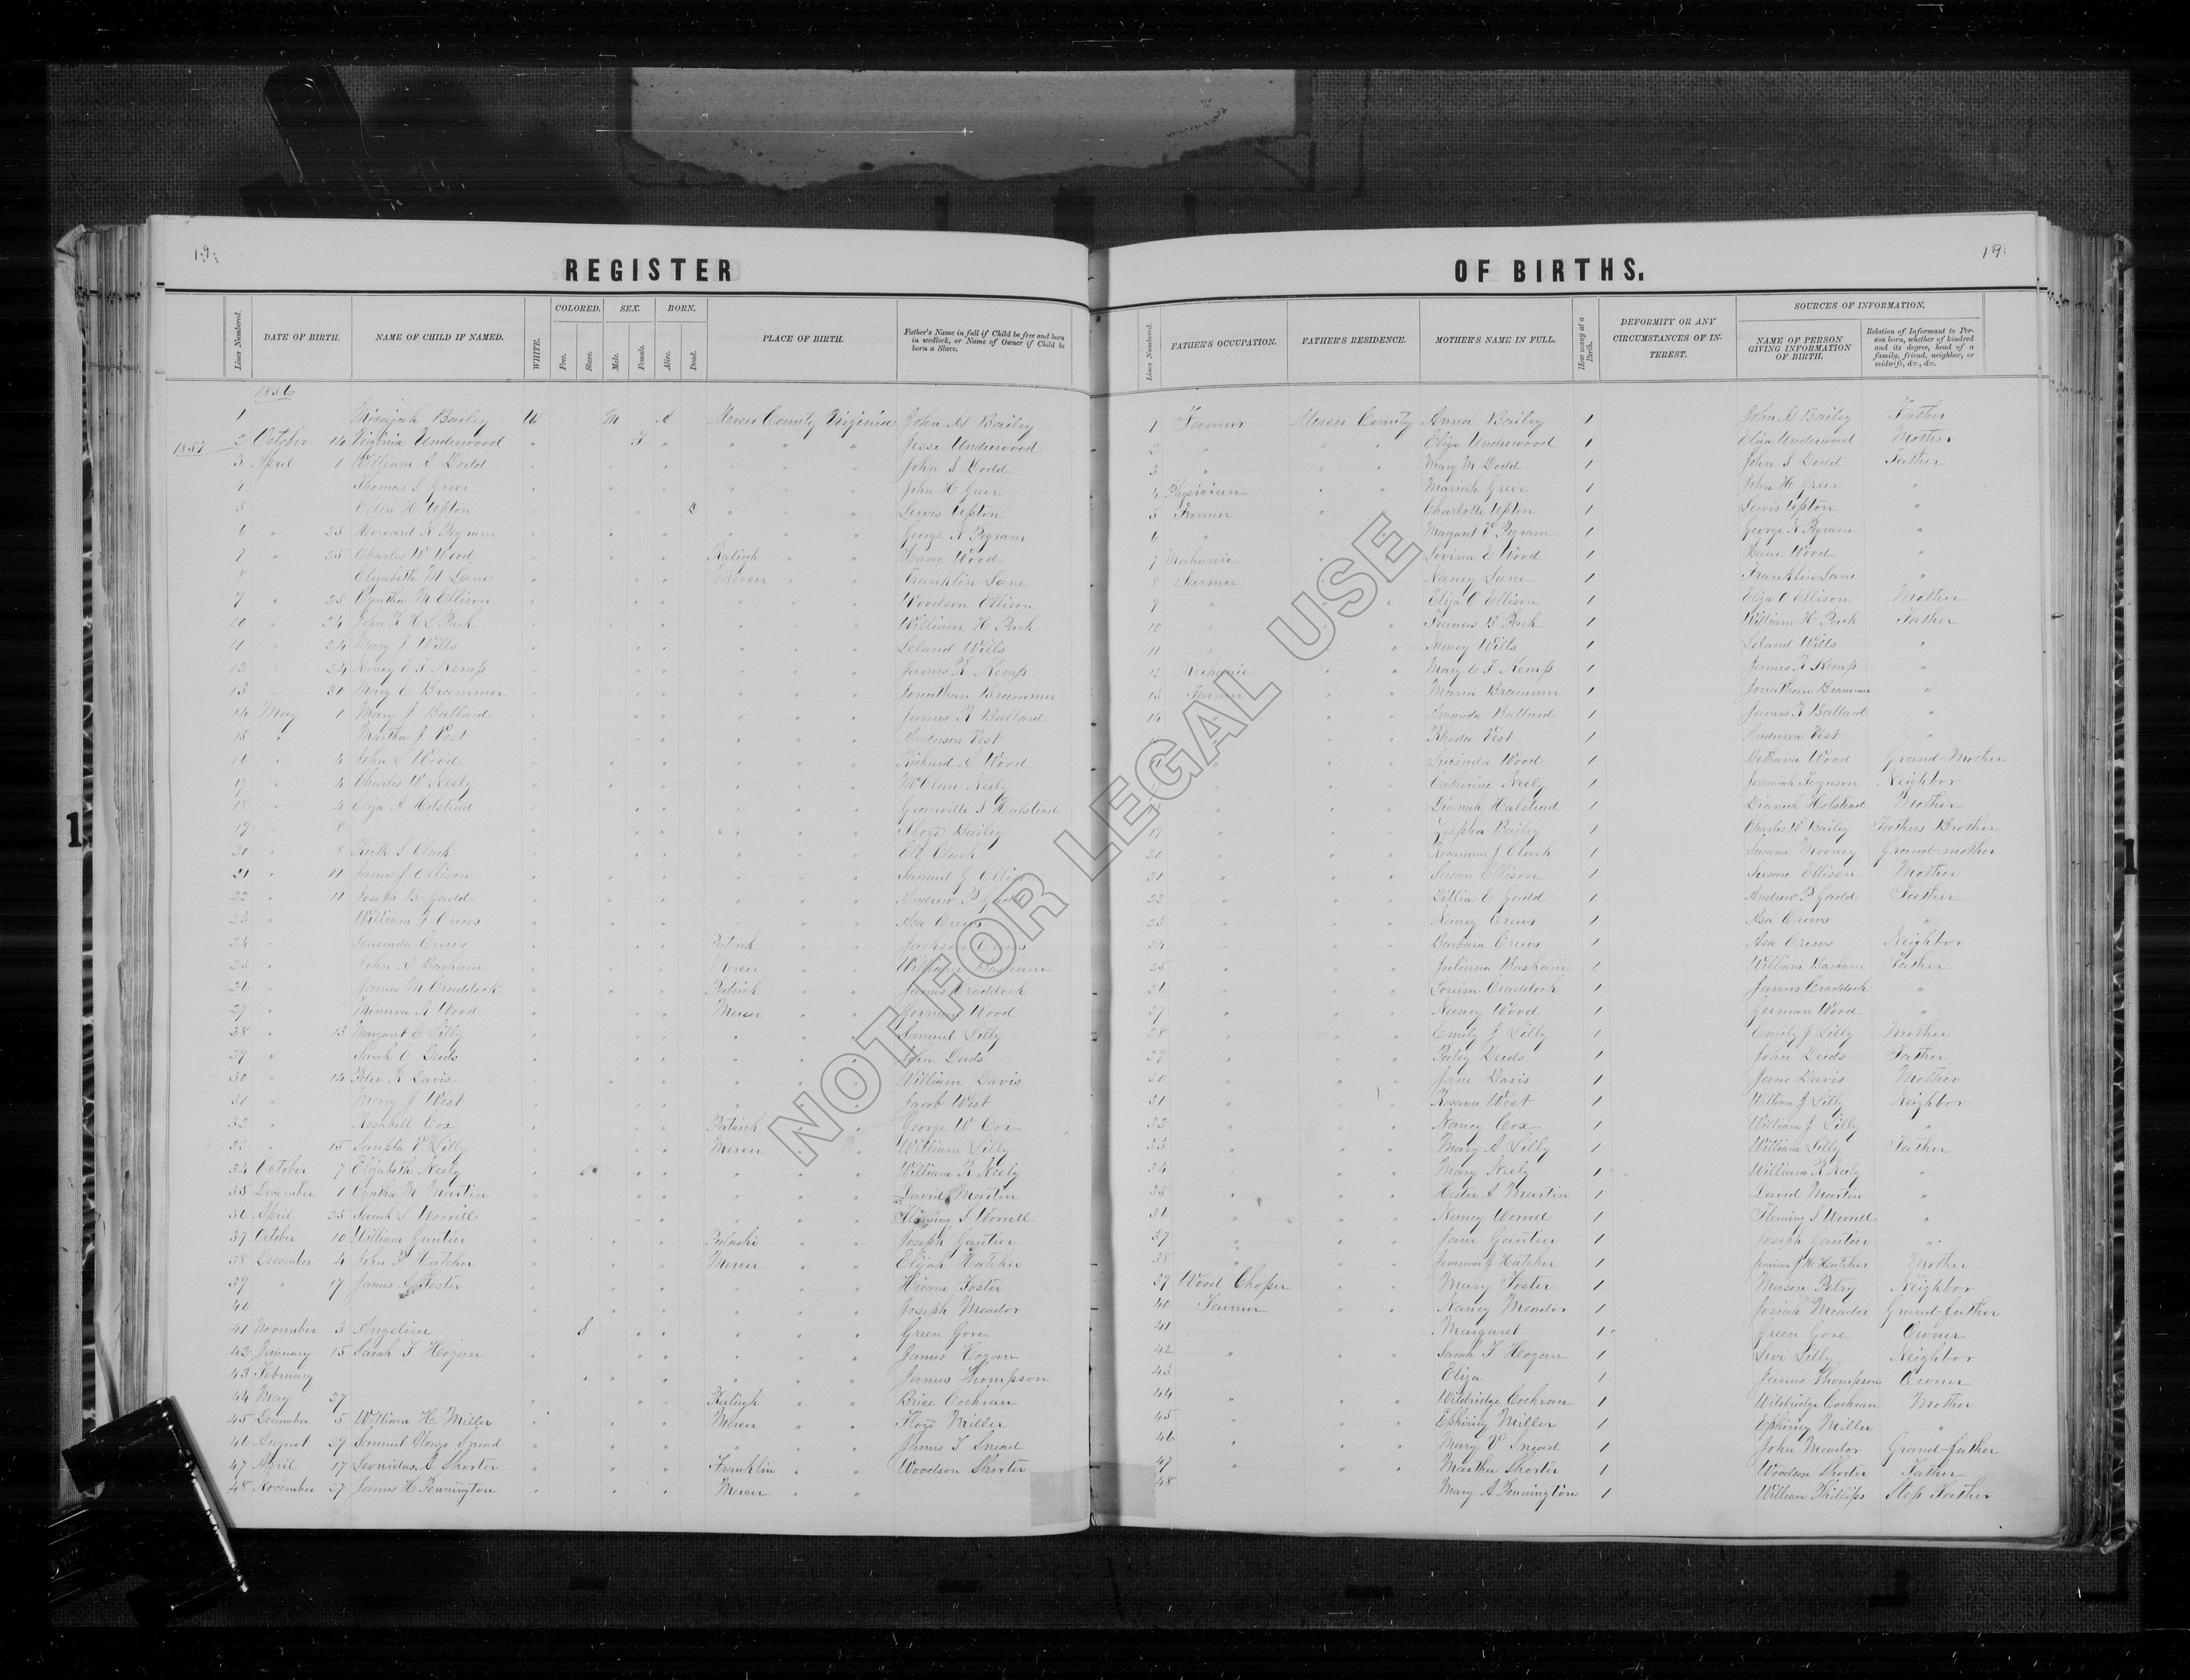 19
REGISTER
Lines Numbered. DATE OF BIRTH. NAME OF CHILD IF NAMED. WHITE. COLORED. Free. Slave. SEX. Male. Female. BORN. Alive. Dead. PLACE OF BIRTH. Father's Name in full if Child be free and born in wedlock, or Name of Owner if Child be born a Slave.
1856
1 Micajah Bailey W M A Mercer County Virginia John M Bailey
1857 2 October 14 Virginia Underwood " F " " " " Jesse Underwood
3 April 1 William A Dodd John S Dodd
4 Thomas S Greer John H Greer
5 H Upton D Lewis Upton
6 " 25 Howard N Pegram George N Pegram
7 " 25 Charles W Wood Raleigh " " Isaac Wood
8 Elizabeth M Lane Mercer " " Franklin Lane
9 " 28 Cyntha M Ellison Woodson Ellison
10 " 24 John H L Pack William H Pack
11 " 24 Mary J Wills Leland Wills
12 24 Nancy E F Kemp James R Kemp
13 30 Mary E Brammer Jonathan Brammer
14 May 1 Mary J Ballard James R Ballard
15 " Martha J Vest Anderson Vest
16 " 4 John L Wood Richard A Wood
17 " 4 Charles W Neely McClure Neely
18 " 4 Eliza A Holstead Granville S Halstead
19 " 8 Floyd Bailey
20 " 8 Ruth S Clark Clark
21 " 11 James J Ellison Samuel G Ellison
22 " 11 Joseph B Gadd Andrew P Gadd
23 " William J Crews Asa Crews
24 " Lucinda Crews Patrick " " Jackson Crews
25 " John A Basham Mercer " " William Basham
26 " James M Craddock Patrick " " James Craddock
27 " Minerva A Wood Mercer " " German Wood
28 " 13 Margaret E Lilly Samuel Lilly
29 " Sarah E Deeds John Deeds
30 " 14 Peter R Davis William Davis
31 " Mary J West Jacob West
32 " Rosabell Cox Patrick " George W Cox
33 " 15 V Lilly Mercer " William Lilly
34 October 7 Elizabeth Neely William R Neely
35 December 1 Cyntha M Martin David Martin
36 April 25 Sarah S Worrell Fleming S Worrell
37 October 10 William Gautier Pulaski " " Joseph Gautier
38 December 4 John P Hatcher Mercer " " Elijah Hatcher
39 " 17 James Foster Hiram Foster
40 Joseph Meador
41 November 3 Angeline S Green Gore
42 January 15 Sarah F Hogan James Hogan
43 February James Thompson
44 May 27 Raleigh " " Brice Cochran
45 December 5 William H Miller Mercer " " Floyd Miller
46 August 29 Samuel Alonzo Snead James T Snead
47 April 17 Leonidas A Shorter Franklin " " Woodson Shorter
48 November 27 James H Pennington Mercer " "
19
OF BIRTHS.
Lines Numbered. FATHER'S OCCUPATION. FATHER'S RESIDENCE. MOTHER'S NAME IN FULL. How many at a Birth. DEFORMITY OR ANY CIRCUMSTANCES OF INTEREST. SOURCES OF INFORMATION. NAME OF PERSON GIVING INFORMATION OF BIRTH. Relation of Informant to Person born, whether of kindred and its degree, head of a family, friend, neighbor, or midwife, &c., &c.
1 Farmer Mercer County Anna Bailey 1 John M Bailey Father
2 " " " Eliza Underwood 1 Eliza Underwood Mother
3 " Mary M Dodd 1 John S Dodd Father
4 Physician " " Mariah Greer 1 John H Greer "
5 Farmer " Charlotte Upton 1 Lewis Upton "
6 " Margaret V Pegram 1 George N Pegram "
7 Mechanic Lovina E Wood 1 Isaac Wood "
8 Farmer Nancy Lane 1 Franklin Lane "
9 " Eliza C Ellison 1 Eliza C Ellison Mother
10 " Frances B Pack 1 William H Pack Father
11 " Nancy Wills 1 Leland Wills "
12 Mechanic " " Mary E F Kemp 1 James R Kemp "
13 Farmer " " Maria Brammer 1 Jonathan Brammer "
14 " " Amanda Ballard 1 James R Ballard "
" " Rhoda Vest 1 Anderson Vest "
" " Lucinda Wood 1 Bethania Wood Grand-Mother
" " " Catherine Neely 1 Jeremiah Ferguson Neighbor
" " " Dianah Halstead 1 Dianah Holstead Mother
19 " " " Zilpha Bailey 1 Charles W Bailey Fathers Brother
20 " " " Rosannan J Clark 1 Susana Mooney Grand-mother
21 " " " Susan Ellison 1 Susan Ellison Mother
22 " " " Lillia E Gadd 1 Andrew P Gadd Father
23 " " " Nancy Crews 1 Asa Crews "
24 " " " Barbara Crews 1 Asa Crews Neighbor
25 " " " Julianna Basham 1 William Basham Father
26 " " " Louisa Craddock 1 James Craddock "
27 " " " Nancy Wood 1 German Wood "
28 " " " Emily J Lilly 1 Emily J Lilly Mother
29 " " " Patsy Deeds 1 John Deeds Father
30 " " " Jane Davis 1 Jane Davis Mother
31 " " Rosana West 1 William J Lilly Neighbor
32 " " " Nancy Cox 1 William J Lilly "
33 " " " Mary A Lilly 1 William Lilly Father
34 " " " Mary Neely 1 William R Neely "
35 " " " Hester A Martin 1 David Martin "
36 " " " Nancy Worrell 1 Fleming S Worrell "
37 " " " Jane Gautier 1 Joseph Gautier "
38 " " " Jemima J Hatcher 1 Jemima J H Hatcher Mother
39 Wood Choper " " Mary Foster 1 Mason Petry Neighbor
40 Farmer " " Nancy Meador 1 Josiah Meador Grand-father
41 Margaret 1 Green Gore Owner
42 " " " Sarah F Hogan 1 Levi Lilly Neighbor
43 Eliza 1 James Thompson Owner
44 " " " Wildridge Cochran 1 Wildridge Cochran Mother
45 " " " Miller 1 Miller "
46 " " " Mary V Snead 1 John Meador Grand-father
47 " " " Martha Shorter 1 Woodson Shorter Father
48 Mary A Pennington 1 William Phillips Step Father
NOT FOR LEGAL USE
1
1